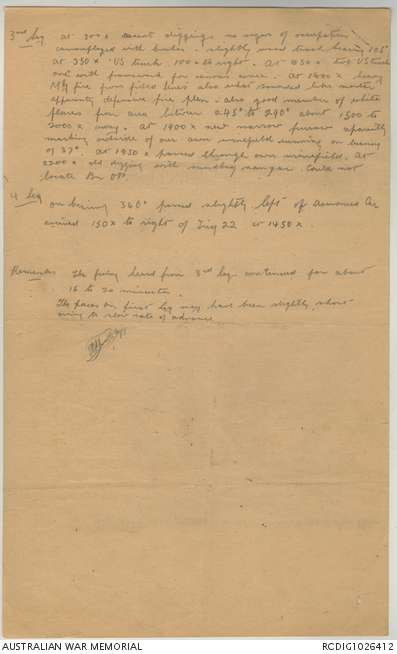 3rd leg at 300x recent diggings no signs of occupation
camouflaged with bushes - slightly used track bearing 105°
at 350x US truck 100x to right. At 850x two US trucks
one with framework for canvas cover. At 1600x heavy
M/G fire from fixed lines also what sounded like mortar
apparently defensive fire plan - also good number of white
flares from arc between 245° to 290° about 1500 to
2000x away. At 1900x new narrow furrow apparently
marking outside of our own minefield running on bearing
of 37°. at 1950x passed through own minefield. At
2200x old digging with sandbag sangar. Could not
locate Bn OP.
4 leg on bearing 360° passed slightly left of
arrived 150x to right of Trig 22 at 1450x.
Remarks The firing heard from 3rd leg continued for about
15 to 20 minutes.
The paces on first leg may have been slightly short
owing to slow rate of advance
AUSTRALIAN WAR MEMORIAL
RCDIG1026412